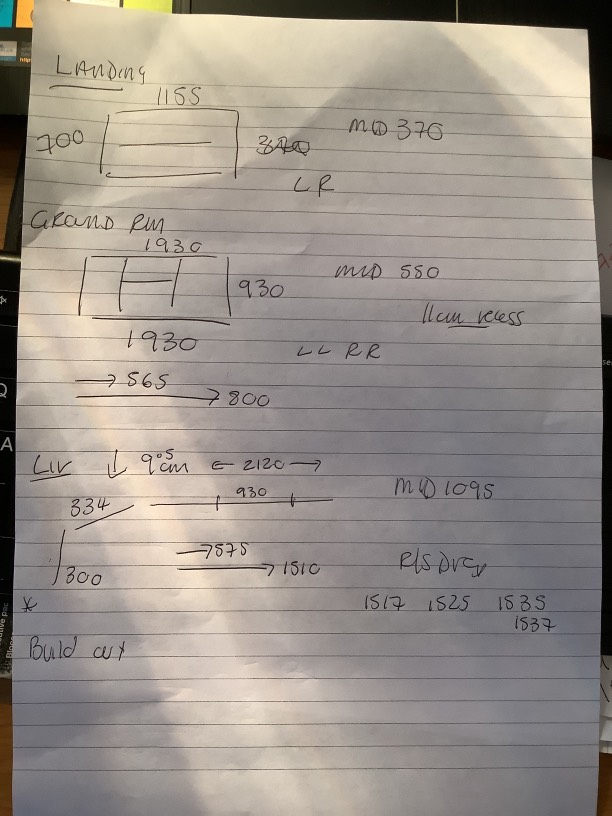 LANDING
1155
700 MID 370
LR
GRAND RM
1930
MID 550
930
11cm recess
1930
LL RR
→ 565
→ 800
LIV ↓ 9.5cm ← 2120 →
930 MID 1095
334
300 → 575
→ 1510
1517 1525 1535
1537
*
Build out